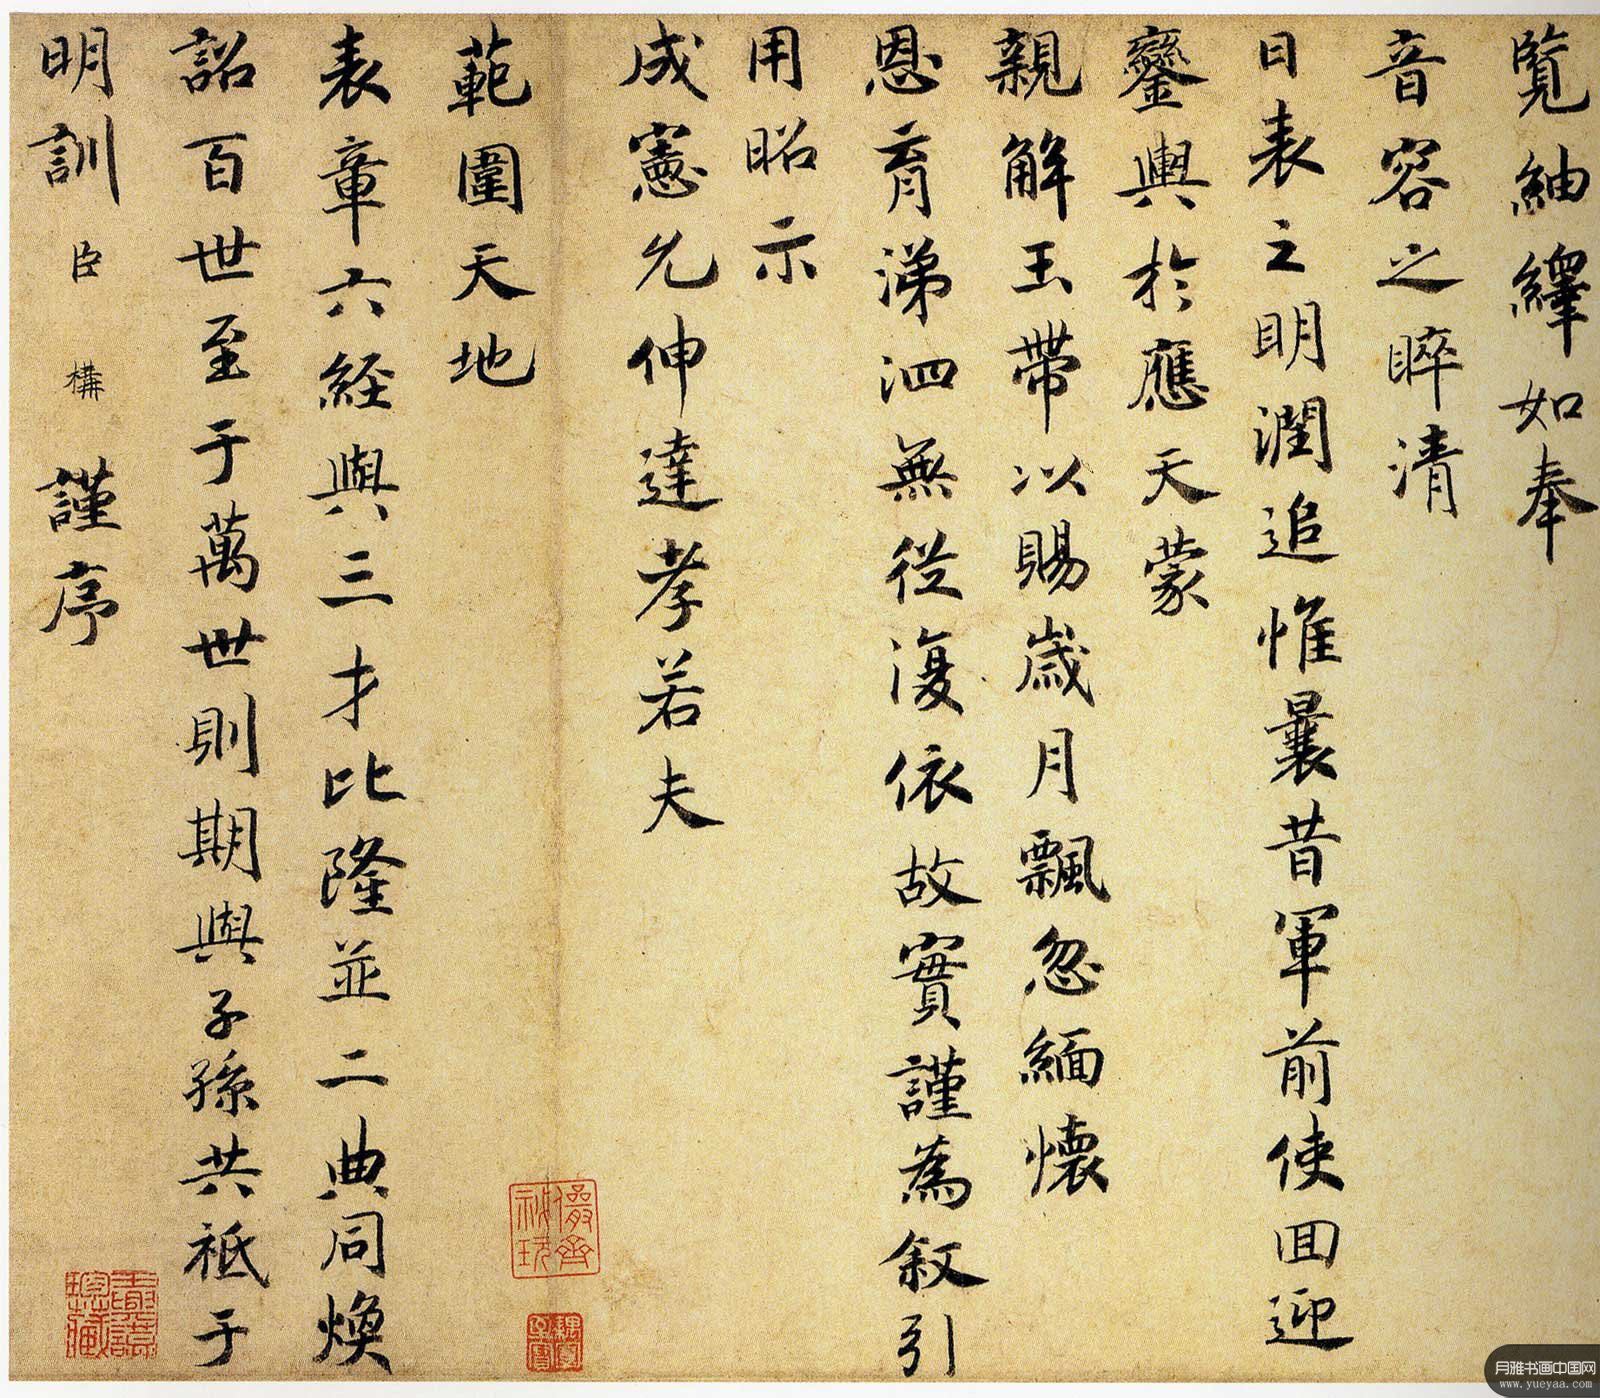 覽紬繹如奉
音容之睟清
日表之明潤追惟曩昔軍前使回迎
鑾輿於應天蒙
親解玉帶以賜歲月飄忽緬懷
恩育涕泗無從復依故實謹為叙引
用昭示
成憲允伸達孝若夫
範圍天地
表章六經與三才比隆並二典同煥
詔百世至于萬世則期與子孫共祗于
明訓臣構謹序
儼齋秘玩
月雅书画中国网
www.yueyaa.com